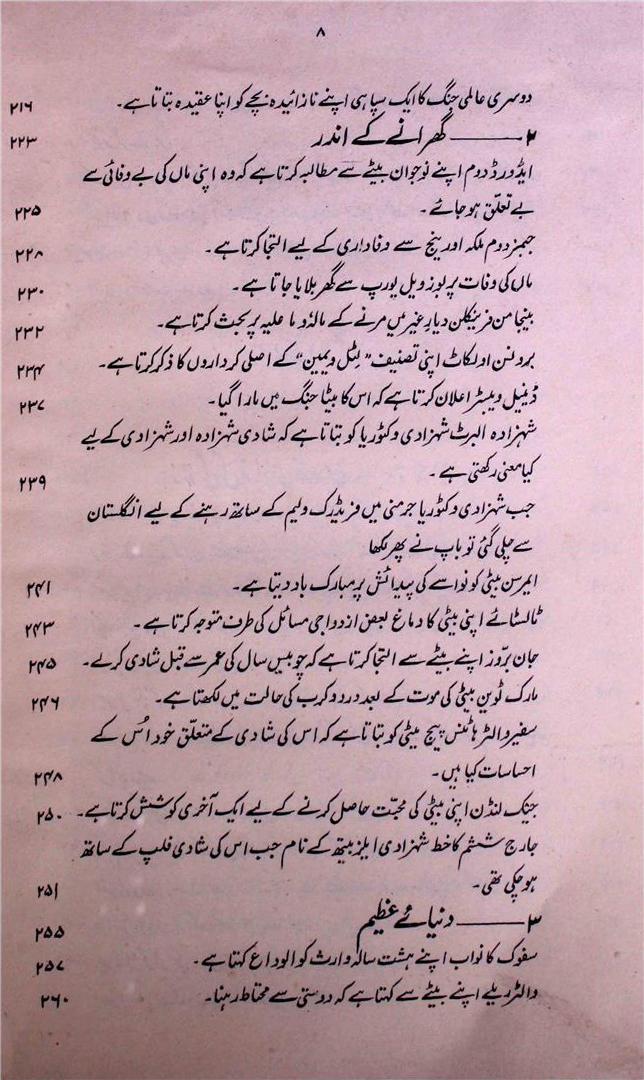 ۸
دوسری عالمی جنگ کا ایک سپاہی اپنے نازائیدہ بچے کو اپنا عقیدہ بتاتا ہے۔ ۲۱۶
۲ ——— گھرانے کے اندر ۲۲۳
ایڈورڈ دوم اپنے نوجوان بیٹے سے مطالبہ کرتا ہے کہ وہ اپنی ماں کی بے وفائی سے
بے تعلق ہو جائے۔ ۲۲۵
جیمز دوم ملکہ اورینج سے وفاداری کے لیے التجا کرتا ہے۔ ۲۲۸
ماں کی وفات پر بوزویل یورپ سے گھر بلایا جاتا ہے۔ ۲۳۰
بینجامن فرینکلن دیارِ غیر میں مرنے کے مالہٗ و ما علیہ پر بحث کرتا ہے۔ ۲۳۲
برونسن اولکاٹ اپنی تصنیف "لٹل ویمین" کے اصلی کرداروں کا ذکر کرتا ہے۔ ۲۳۴
ڈینیل ویبسٹر اعلان کرتا ہے کہ اس کا بیٹا جنگ میں مارا گیا۔ ۲۳۷
شہزادہ البرٹ شہزادی وکٹوریا کو بتاتا ہے کہ شادی شہزادہ اور شہزادی کے لیے
کیا معنی رکھتی ہے۔ ۲۳۹
جب شہزادی وکٹوریا جرمنی میں فریڈرک ولیم کے ساتھ رہنے کے لیے انگلستان
سے چلی گئی تو باپ نے پھر لکھا
ایمرسن بیٹی کو نواسے کی پیدائش پر مبارک باد دیتا ہے۔ ۲۴۱
ٹالسٹائے اپنی بیٹی کا دماغ بعض ازدواجی مسائل کی طرف متوجہ کرتا ہے۔ ۲۴۳
جان بروز اپنے بیٹے سے التجا کرتا ہے کہ چوبیس سال کی عمر سے قبل شادی کرلے۔ ۲۴۵
مارک ٹوین بیٹی کی موت کے بعد درد و کرب کی حالت میں لکھتا ہے۔ ۲۴۶
سفیر والٹر ہائنس پیج بیٹی کو بتاتا ہے کہ اس کی شادی کے متعلّق خود اُس کے
احساسات کیا ہیں۔ ۲۴۸
جیک لنڈن اپنی بیٹی کی محبّت حاصل کرنے کے لیے ایک آخری کوشش کرتا ہے۔ ۲۵۰
جارج ششم کا خط شہزادی ایلزبیتھ کے نام جب اس کی شادی فلپ کے ساتھ
ہو چکی تھی۔ ۲۵۱
۳ ——— دنیائے عظیم ۲۵۵
سفوک کا نواب اپنے ہشت سالہ وارث کو الوداع کہتا ہے۔ ۲۵۷
والٹر ریلے اپنے بیٹے سے کہتا ہے کہ دوستی سے محتاط رہنا۔ ۲۶۰